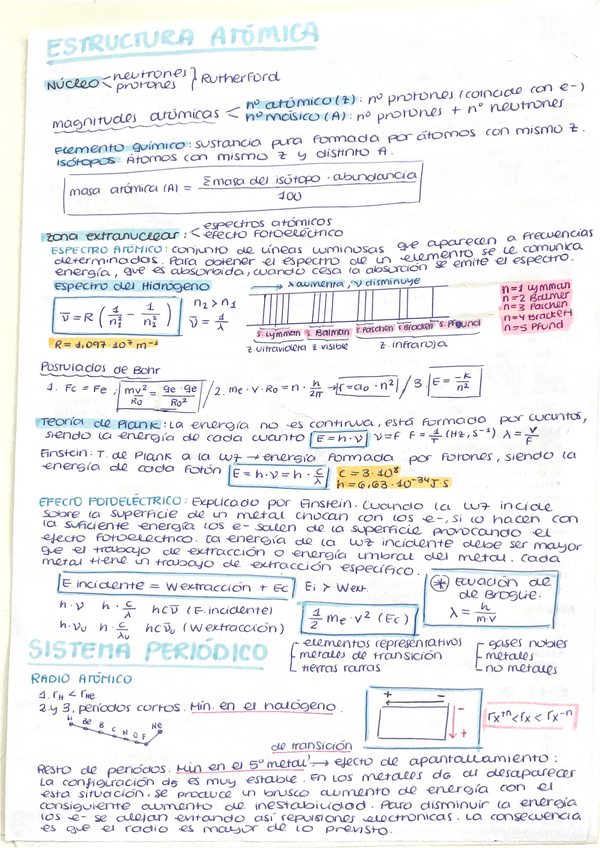 ESTRUCTURA ATÓMICA
Núcleo < neutrones protones } Rutherford
magnitudes atómicas < nº atómico (z): nº protones (coincide con e-)
nº másico (A): nº protones + nº neutrones
Elemento químico: sustancia pura formada por átomos con mismo z.
Isótopos: Átomos con mismo z y distinto A.
masa atómica (A) = Σmasa del isótopo · abundancia / 100
Zona extranuclear: < espectros atómicos
efecto fotoeléctrico
ESPECTRO ATÓMICO: conjunto de líneas luminosas que aparecen a frecuencias
determinadas. Para obtener el espectro de un elemento se le comunica
energía, que es absorbida, cuando cesa la absorción se emite el espectro.
Espectro del Hidrógeno
→ λ aumenta, ν disminuye
ν̄ = R (1/n₁² - 1/n₂²) n₂ > n₁
ν̄ = 1/λ
R = 1,097 · 10⁷ m⁻¹
s. Lymman s. Balman s. Paschen s. Bracken s. Pfound
z. ultravioleta z. visible z. infraroja
n=1 Lymman
n=2 Balmer
n=3 Paschen
n=4 Brackett
n=5 Pfund
Postulados de Bohr
1. Fc = Fe; mv²/R₀ = qe·qe/R₀² / 2. me · v · R₀ = n · h/2π → r = a₀ · n² / 3. E = -k/n²
Teoría de Plank: La energía no es continua, está formada por cuantos,
siendo la energía de cada cuanto E = h · ν ν = F F = 1/T (Hz, s⁻¹) λ = v/F
Einstein: T. de Plank a la luz → energía formada por fotones, siendo la
energía de cada fotón E = h · ν = h · c/λ c = 3 · 10⁸
h = 6,63 · 10⁻³⁴ J s
EFECTO FOTOELÉCTRICO: Explicado por Einstein. Cuando la luz incide
sobre la superficie de un metal chocan con los e-, si lo hacen con
la suficiente energía los e- salen de la superficie provocando el
efecto fotoeléctrico. La energía de la luz incidente debe ser mayor
que el trabajo de extracción o energía umbral del metal. Cada
metal tiene un trabajo de extracción específico.
E incidente = W extracción + Ec Ei > Wext.
h · ν h · c/λ hcν̄ (E. incidente)
h · ν₀ h · c/λ₀ hcν̄₀ (W extracción)
1/2 me · v² (Ec)
* Ecuación de
de Broglie.
λ = h/m·v
SISTEMA PERIÓDICO
elementos representativos
metales de transición
tierras raras
gases nobles
metales
no metales
RADIO ATÓMICO
1. rH < rHe
2 y 3, períodos cortos. Mín. en el halógeno.
Li Be B C N O F Ne
← - + -
+
rx⁺ⁿ < rx < rx⁻ⁿ
de transición
Resto de períodos. Mín en el 5º metal → efecto de apantallamiento:
La configuración d5 es muy estable. En los metales d6 al desaparecer
esta situación, se produce un brusco aumento de energía con el
consiguiente aumento de inestabilidad. Para disminuir la energía
los e- se alejan evitando así repulsiones electronicas. La consecuencia
es que el radio es mayor de lo previsto.